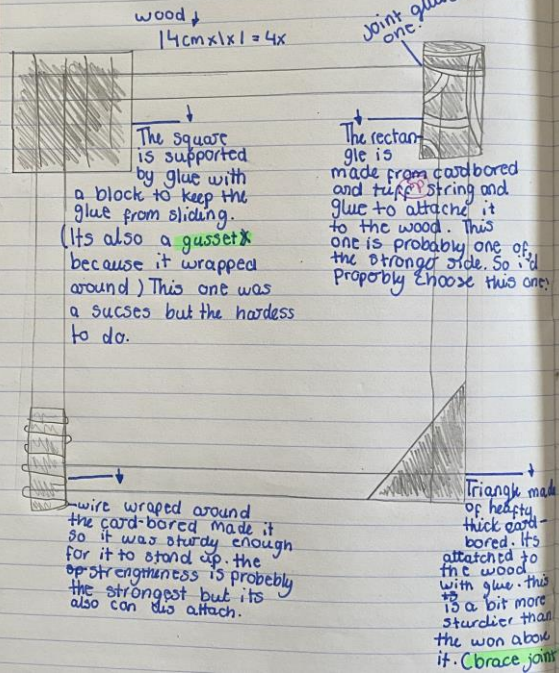 wood
14cmx1x1 = 4x
joint glue
one.
The square
is supported
by glue with
a block to keep the
glue from sliding.
(Its also a gusset
because it wrapped
around) This one was
a sucses but the hardess
to do.
The rectan-
gle is
made from cardbored
and tuff string and
glue to attache it
to the wood. This
one is probably one of
the stronge side. So i'd
properbly choose this one!
wire wraped around
the card-bored made it
so it was sturdy enough
for it to stand up. the
strengthness is probebly
the strongest but its
also can dis attach.
Triangle made
of heafty
thick card-
bored. Its
attatched to
the wood
with glue. this
is a bit more
sturdier than
the won above
it. (brace joint